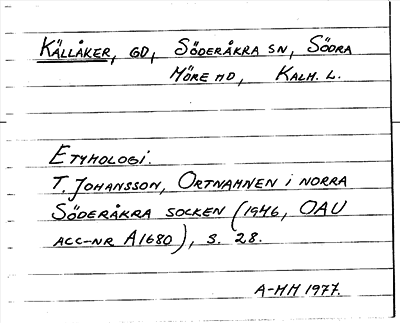 KÄLLÅKER, GD, SÖDERÅKRA SN, SÖDRA
MÖRE HD, KALM. L.
ETYMOLOGI.
T. JOHANSSON, ORTNAMNEN I NORRA
SÖDERÅKRA SOCKEN (1946, OAU
ACC-NR A1680), S. 28.
A-MH 1977.